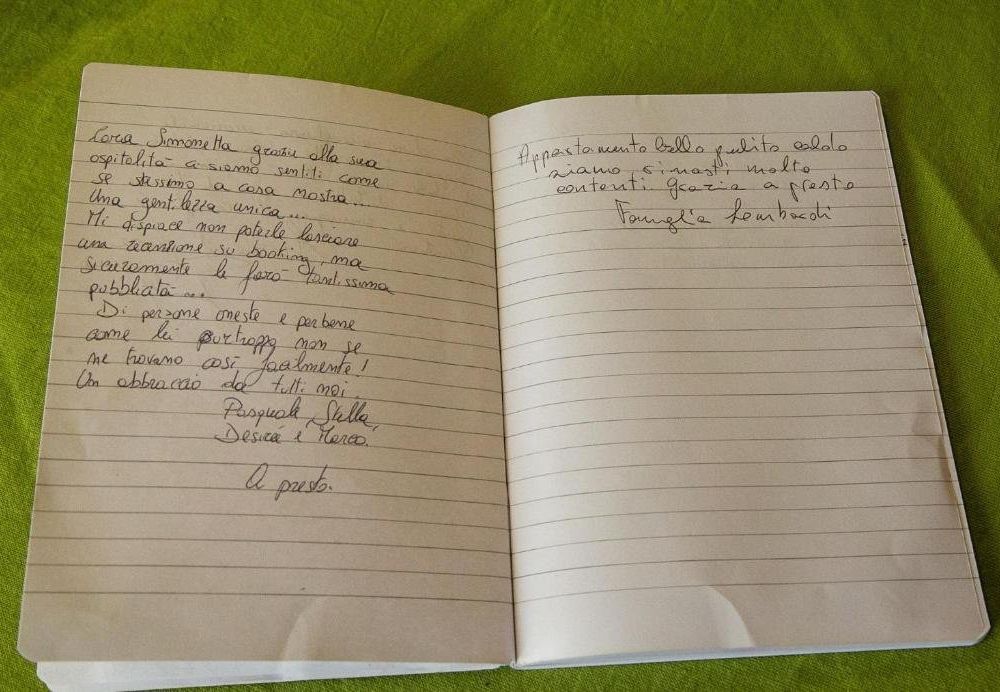 Cara Simonetta grazie alla sua
ospitalità ci siamo sentiti come
se stessimo a casa nostra...
Una gentilezza unica...
Mi dispiace non poterle lasciare
una recensione su booking, ma
sicuramente le farò tantissima
pubblicità...
Di persone oneste e perbene
come lei purtroppo non se
ne trovano così facilmente!
Un abbraccio da tutti noi.
Pasquale, Stella,
Desirè e Marco.
A presto.
Appartamento bello pulito caldo
siamo rimasti molto
contenti grazie a presto
Famiglia Lombardi